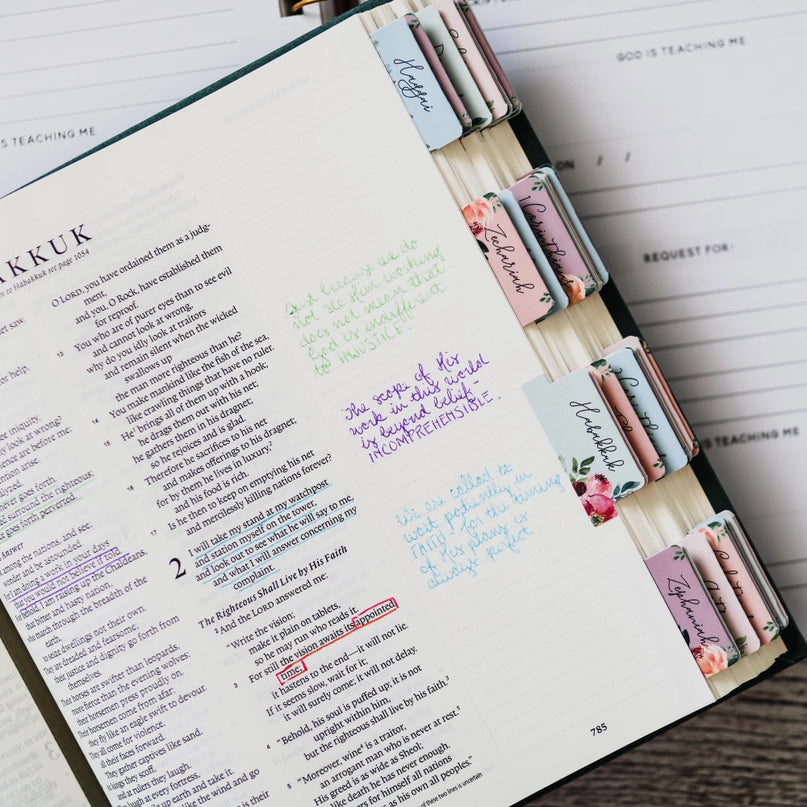 GOD IS TEACHING ME
S TEACHING ME
ON / /
REQUEST FOR:
IS TEACHING ME
AKKUK
n to Habakkuk see page 1084
er saw.
or help.
iniquity.
y look at wrong?
ence are before me;
ntion arise.
never goes forth.
d surround the righteous;
goes forth perverted.
Answer
among the nations, and see;
wonder and be astounded.
For I am doing a work in your days
that you would not believe if told.
behold, I am raising up the Chaldeans,
that bitter and hasty nation,
who march through the breadth of the
earth,
to seize dwellings not their own.
They are dreaded and fearsome;
their justice and dignity go forth from
themselves.
Their horses are swifter than leopards,
more fierce than the evening wolves;
their horsemen press proudly on.
Their horsemen come from afar;
they fly like an eagle swift to devour.
They all come for violence,
all their faces forward.
They gather captives like sand.
kings they scoff,
and at rulers they laugh.
They laugh at every fortress,
O LORD, you have ordained them as a judg-
ment,
and you, O Rock, have established them
for reproof.
13 You who are of purer eyes than to see evil
and cannot look at wrong,
why do you idly look at traitors
and remain silent when the wicked
swallows up
the man more righteous than he?
14 You make mankind like the fish of the sea,
like crawling things that have no ruler.
15 He brings all of them up with a hook;
he drags them out with his net;
he gathers them in his dragnet;
so he rejoices and is glad.
16 Therefore he sacrifices to his net
and makes offerings to his dragnet;
for by them he lives in luxury,
and his food is rich.
17 Is he then to keep on emptying his net
and mercilessly killing nations forever?
2 I will take my stand at my watchpost
and station myself on the tower,
and look out to see what he will say to me,
and what I will answer concerning my
complaint.
The Righteous Shall Live by His Faith
2 And the LORD answered me:
"Write the vision;
make it plain on tablets,
so he may run who reads it.
3 For still the vision awaits its appointed
time;
it hastens to the end—it will not lie.
If it seems slow, wait for it;
it will surely come; it will not delay.
4 "Behold, his soul is puffed up; it is not
upright within him,
but the righteous shall live by his faith.
5 "Moreover, wine is a traitor,
an arrogant man who is never at rest.
His greed is as wide as Sheol;
like death he has never enough.
He gathers for himself all nations
as his own all peoples."
of these two lines is uncertain
Just because we do
not see Him working
does not mean that
God is indifferent
to INJUSTICE.
The scope of His
work in this world
is beyond belief -
INCOMPREHENSIBLE.
We are called to
wait patiently in
FAITH - for the timing
of His plans is
always perfect.
785
Haggai
Zechariah
1 Corinthians
Habakkuk
Zephaniah